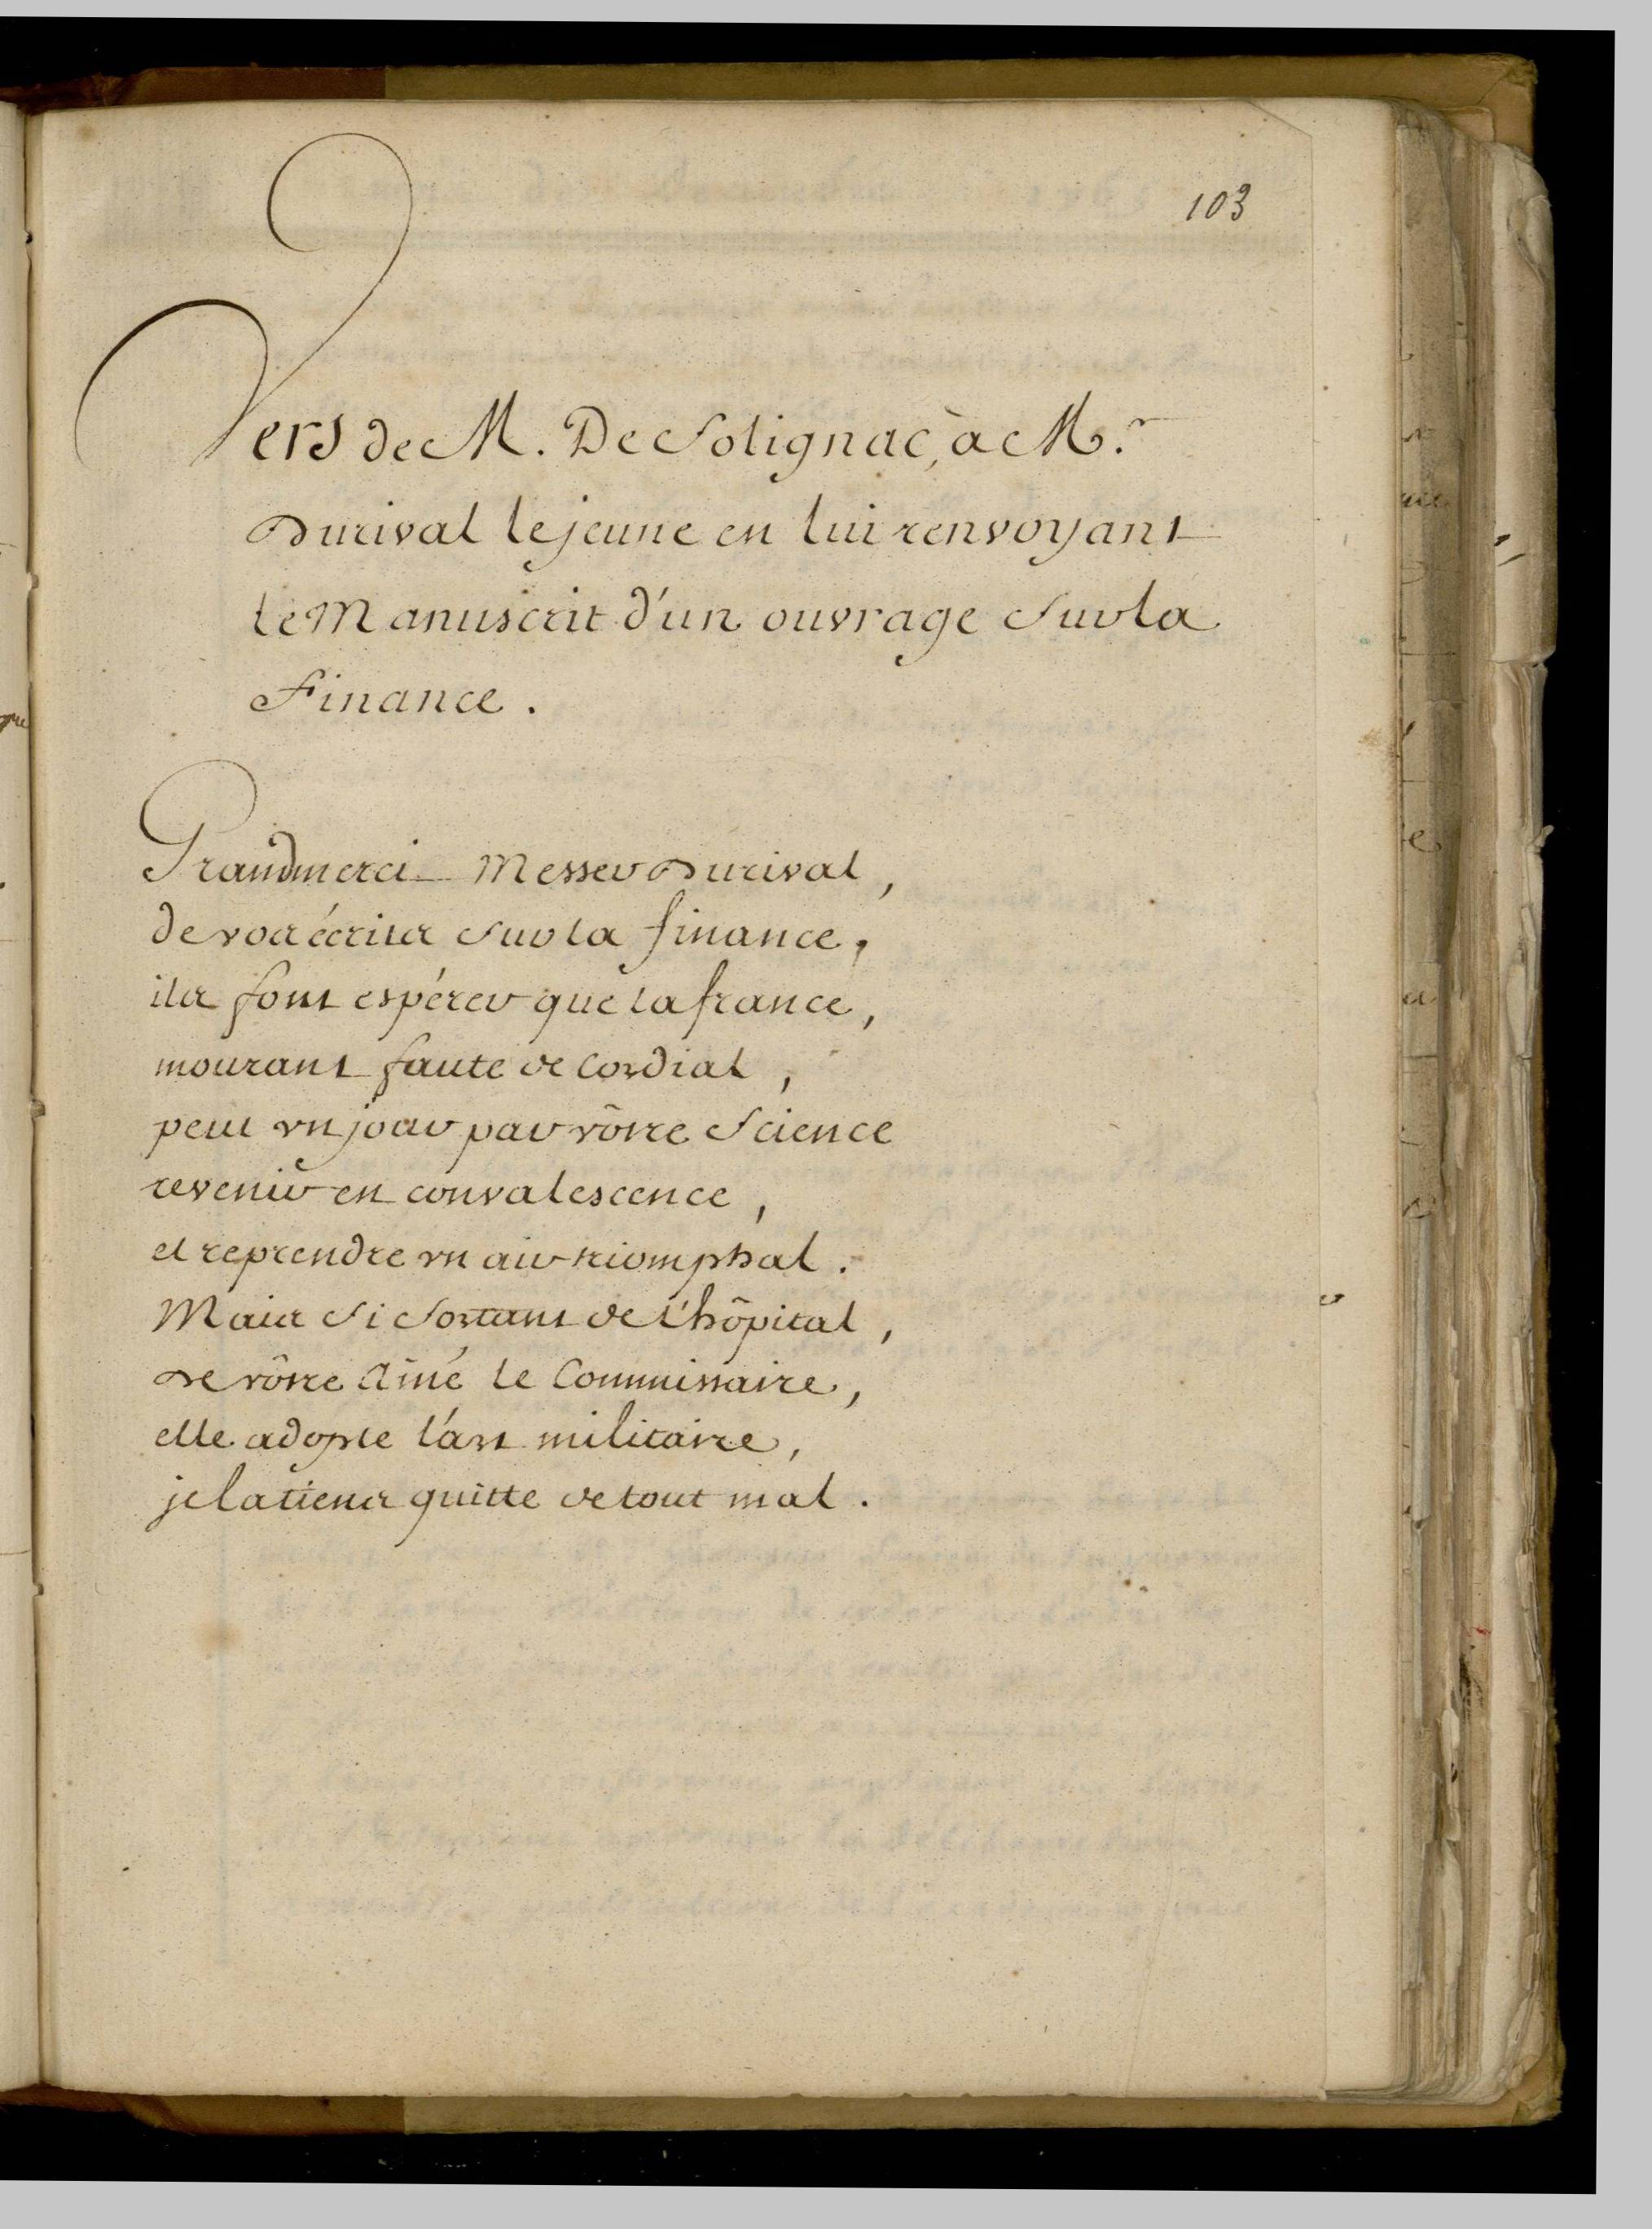 103
Vers de M. De Solignac, à Mr.
Durival le jeune en lui renvoyant
le Manuscrit d'un ouvrage Sur la
Finance.
Grandmerci Messer Durival,
de vos écrits Sur la finance,
ils font espérer que la france,
mourant faute de Cordial,
peut vn jour par vôtre Science
revenir en convalescence,
et reprendre vn air triomphal.
Mais Si Sortant de l'hôpital,
De vôtre Ainé le Commissaire,
elle adopte l'art militaire,
je la tiens quitte de tout mal.